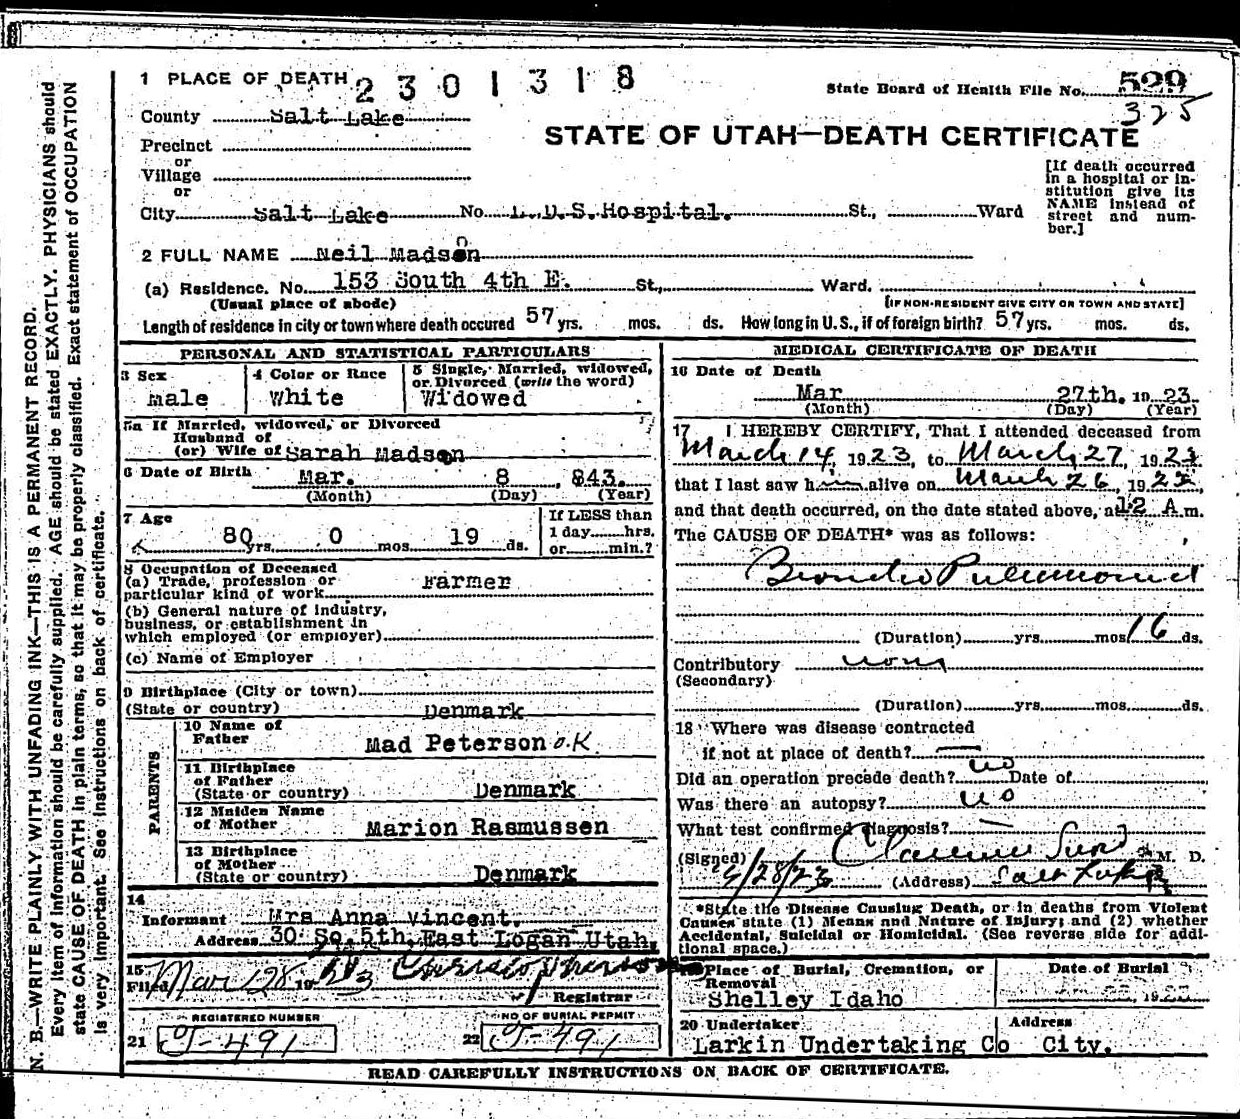 N. B.—WRITE PLAINLY WITH UNFADING INK—THIS IS A PERMANENT RECORD.
Every item of information should be carefully supplied. AGE should be stated EXACTLY. PHYSICIANS should
state CAUSE OF DEATH in plain terms, so that it may be properly classified. Exact statement of OCCUPATION
is very important. See instructions on back of certificate.
1 PLACE OF DEATH 2301318
State Board of Health File No. 529
325
County Salt Lake
STATE OF UTAH—DEATH CERTIFICATE
Precinct
or
Village
or
City Salt Lake No. L.D.S. Hospital. St., Ward
[If death occurred
in a hospital or in-
stitution give its
NAME instead of
street and num-
ber.]
2 FULL NAME Neil Madson
(a) Residence. No. 153 South 4th E. St., Ward.
(Usual place of abode) [IF NON-RESIDENT GIVE CITY OR TOWN AND STATE]
Length of residence in city or town where death occured 57 yrs. mos. ds. How long in U. S., if of foreign birth? 57 yrs. mos. ds.
PERSONAL AND STATISTICAL PARTICULARS
3 Sex
Male
4 Color or Race
White
5 Single, Married, widowed,
or Divorced (write the word)
Widowed
5a If Married, widowed, or Divorced
Husband of
(or) Wife of Sarah Madson
6 Date of Birth Mar. 8, 843.
(Month) (Day) (Year)
7 Age
80 yrs. 0 mos. 19 ds.
If LESS than
1 day hrs.
or min.?
8 Occupation of Deceased
(a) Trade, profession or
particular kind of work Farmer
(b) General nature of industry,
business, or establishment in
which employed (or employer)
(c) Name of Employer
9 Birthplace (City or town)
(State or country) Denmark
PARENTS
10 Name of
Father Mad Peterson O.K
11 Birthplace
of Father
(State or country) Denmark
12 Maiden Name
of Mother Marion Rasmussen
13 Birthplace
of Mother
(State or country) Denmark
14
Informant Mrs Anna Vincent.
Address 30 So. 5th, East Logan Utah.
15
Filed Mar 28 19
Registrar
REGISTERED NUMBER
21 J-491
NO OF BURIAL PERMIT
22 J-491
MEDICAL CERTIFICATE OF DEATH
16 Date of Death
Mar 27th. 19 23.
(Month) (Day) (Year)
17 I HEREBY CERTIFY, That I attended deceased from
March 14, 1923, to March 27, 1923
that I last saw him alive on March 26, 1923,
and that death occurred, on the date stated above, at 12 A.m.
The CAUSE OF DEATH* was as follows:
Broncho Pneumonia
(Duration) yrs. mos. 16 ds.
Contributory none
(Secondary)
(Duration) yrs. mos. ds.
18 Where was disease contracted
if not at place of death?
Did an operation precede death? no Date of
Was there an autopsy? no
What test confirmed diagnosis?
(Signed) M. D.
3/28/23 (Address) Salt Lake
*State the Disease Causing Death, or in deaths from Violent
Causes state (1) Means and Nature of Injury; and (2) whether
Accidental, Suicidal or Homicidal. (See reverse side for addi-
tional space.)
Place of Burial, Cremation, or
Removal
Shelley Idaho
Date of Burial
20 Undertaker Address
Larkin Undertaking Co City.
READ CAREFULLY INSTRUCTIONS ON BACK OF CERTIFICATE.